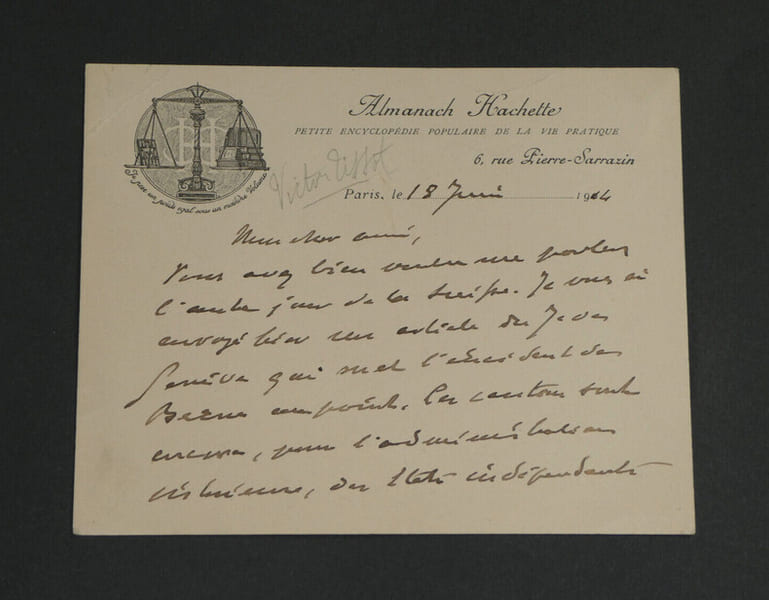 Almanach Hachette
PETITE ENCYCLOPÉDIE POPULAIRE DE LA VIE PRATIQUE
6, rue Pierre-Sarrazin
Victor Tissot
Paris, le 18 Juin 1914
Je suis un poids égal sous un moindre Volume
Mon cher ami,
Vous avez bien voulu me parler
l'autre jour de la Suisse. Je vous ai
envoyé hier un article du J. de
Genève qui met l'incident de
Berne au point. Les cantons sont
encore, pour l'administration
intérieure, des Etats indépendants